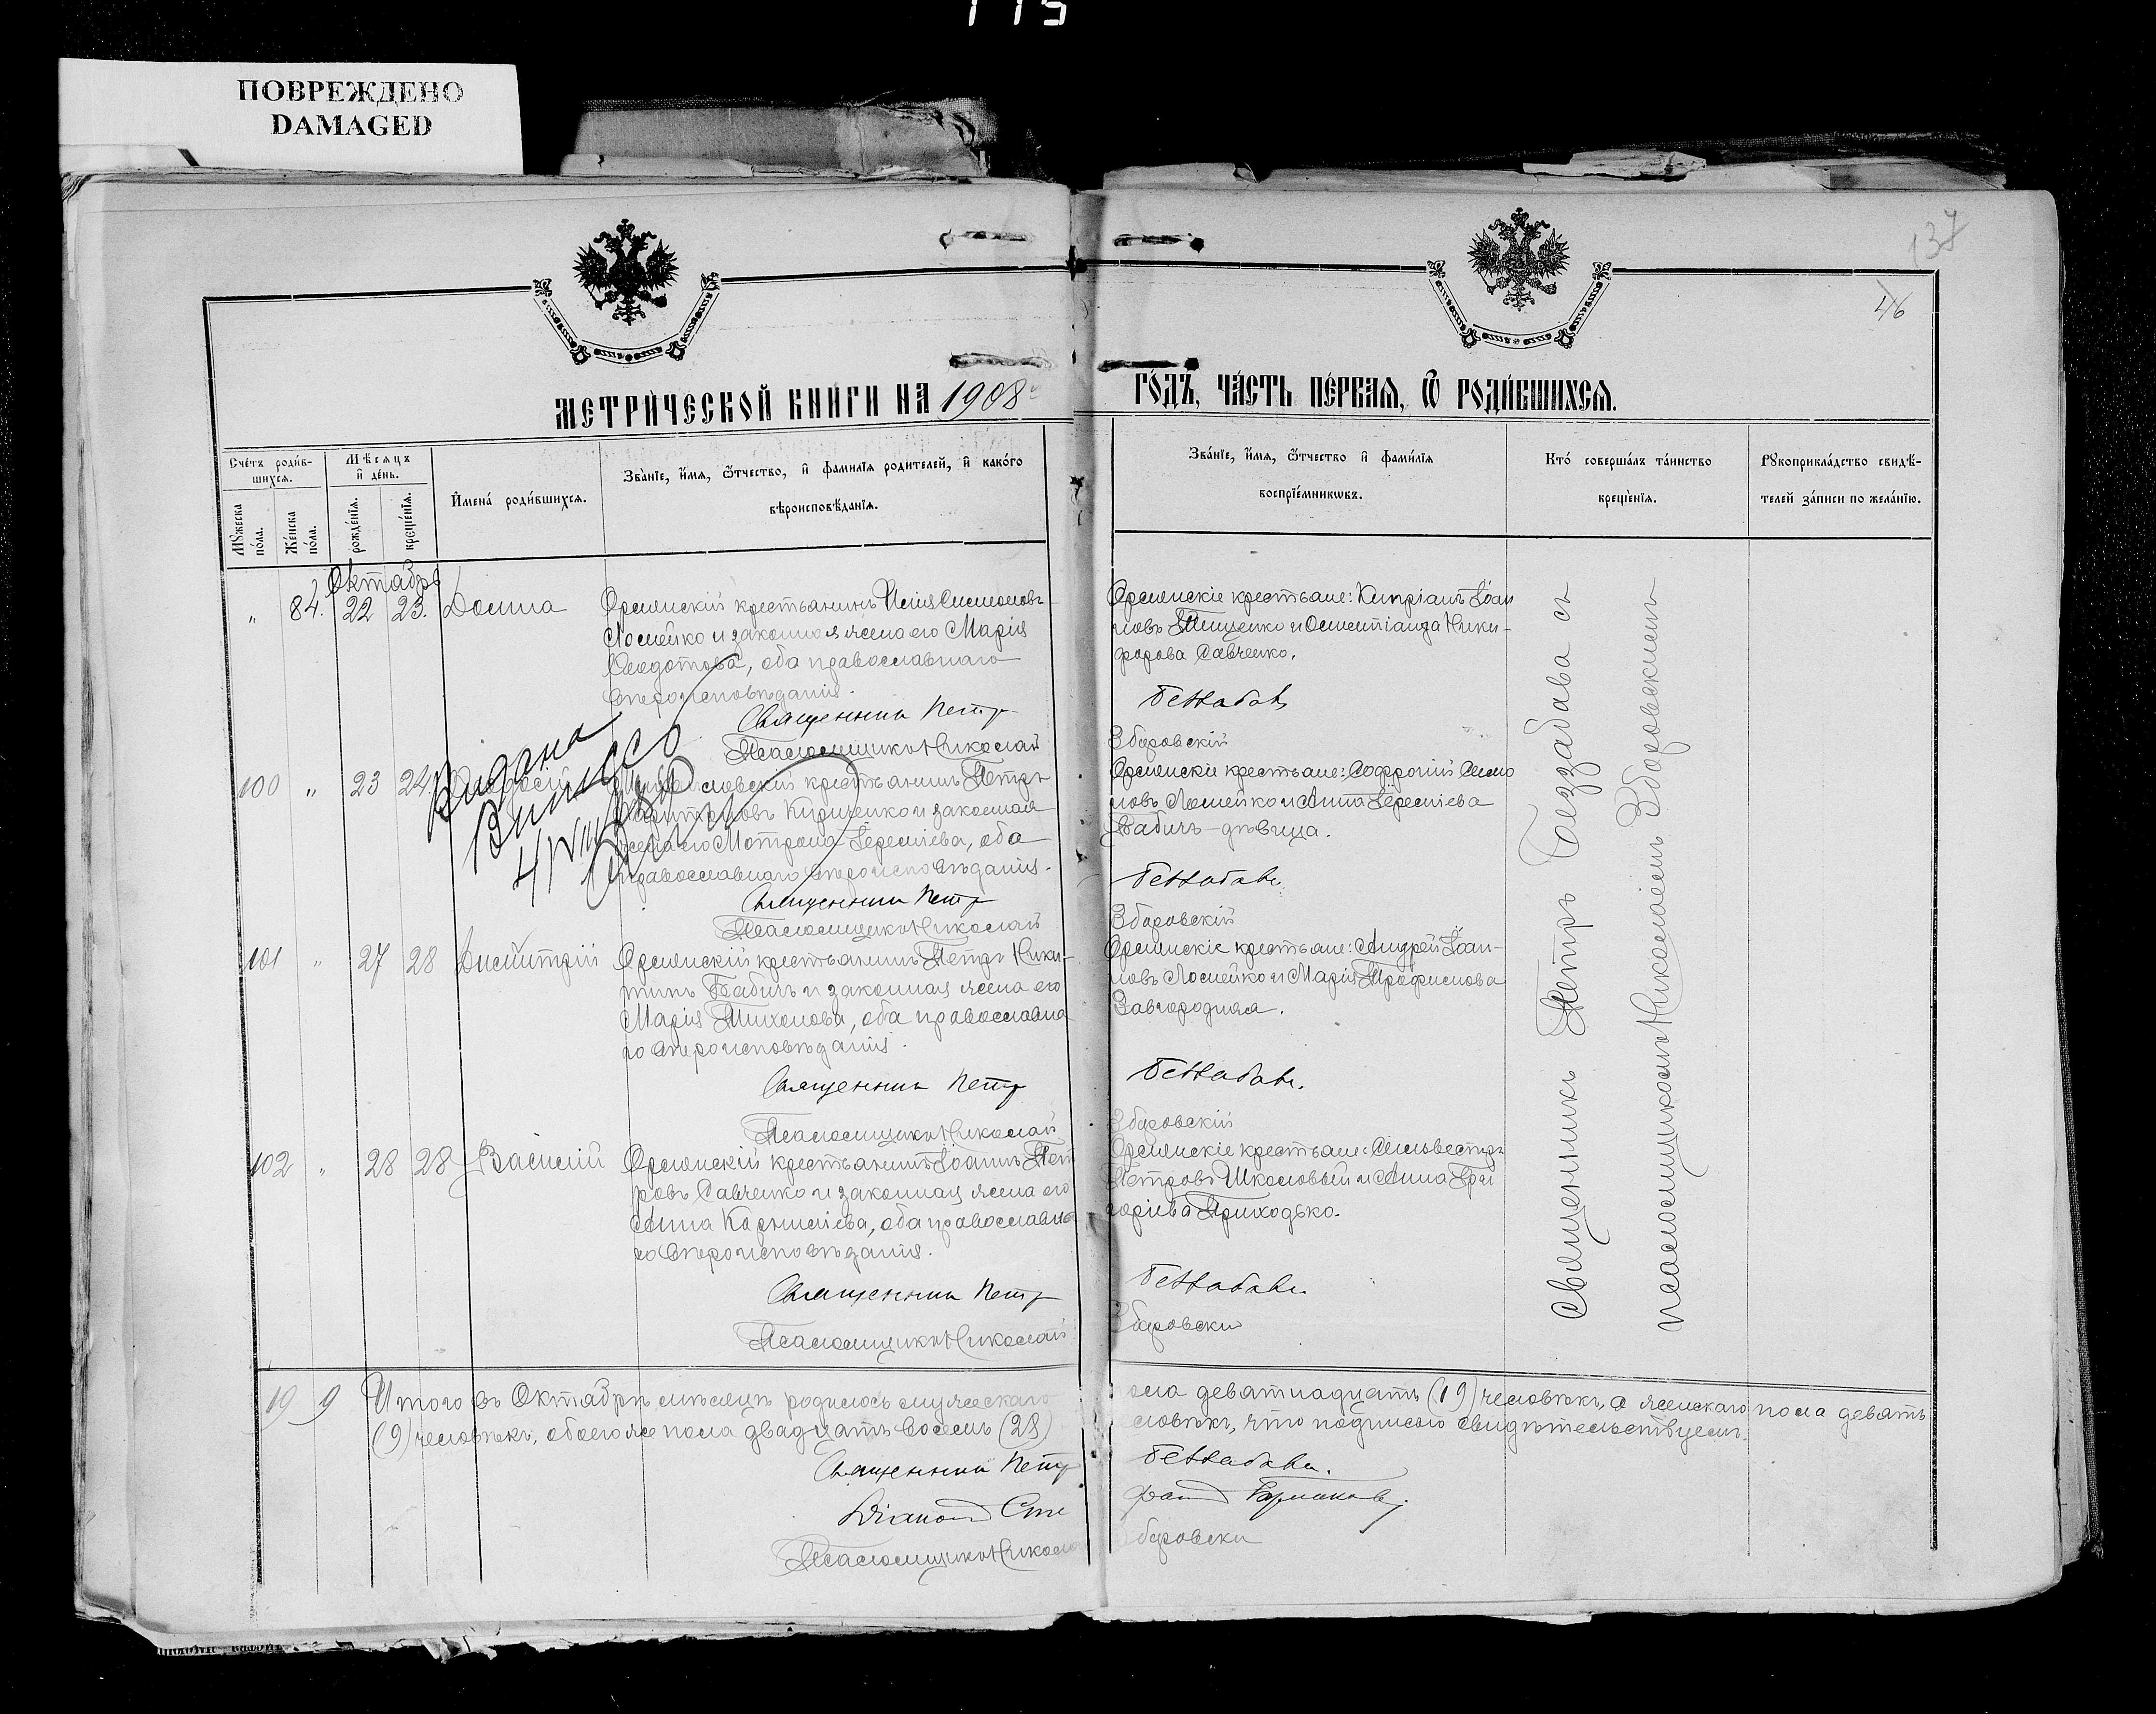 115
ПОВРЕЖДЕНО
DAMAGED
137
46
МЕТРИ́ЧЕСКОЙ КНИГИ НА 1908й
ГО́ДЪ, ЧА́СТЬ ПЕ́РВАЯ, Ѽ РОДИ́ВШИХСЯ.
Сче́тъ роди́в-
шихся.
Мꙋ́жеска
по́ла.
Же́нска
по́ла.
Мѣ́сяцъ
и де́нь.
рожде́нія.
креще́нія.
Имена́ роди́вшихся.
Зва́ніе, и́мя, ѻ́тчество, и фами́лія родителей, и како́го
вѣроисповѣ́данія.
Зва́ніе, и́мя, ѻ́тчество и фами́лія
воспріе́мниковъ.
Кто́ соверша́лъ та́инство
креще́нія.
Рꙋкоприкла́дство свидѣ́-
телей за́писи по жела́нію.
Октябрь
" 84. 22 23. Домна
крестьянинъ
Ломейко и законная жена его Марія
Ѳеодотова, оба православнаго
вѣроисповѣданія.
Священникъ Петръ
Псаломщикъ Николай
крестьяне: Кипріанъ Іоан
новъ Тищенко и Ники-
форова Савченко.
Беззабава
Зборовскій
100 " 23 24
крестьянинъ Петръ
Кириченко и законная
жена его Мотрона Іереміева, оба
православнаго вѣроисповѣданія.
Священникъ Петръ
Псаломщикъ Николай
Видана
Выпись
крестьяне: Софроній
новъ Ломейко и Анна Іереміева
Бабичъ - дѣвица.
Беззабава
Зборовскій
101 " 27 28 Димитрій
крестьянинъ Петръ Ники-
тинъ Бабичъ и законная жена его
Марія Тихонова, оба православна
го вѣроисповѣданія.
Священникъ Петръ
Псаломщикъ Николай
крестьяне: Андрей Іоан-
новъ Ломейко и Марія Трофимова
Завгородняя.
Беззабава.
Зборовскій
102 " 28 28 Василій
крестьянинъ Іоаннъ Пет
ровъ Савченко и законная жена его
Анна Корниліева, оба православна
го вѣроисповѣданія.
Священникъ Петръ
Псаломщикъ Николай
крестьяне: Сильвестръ
Петровъ Школовый и Анна Гри
горіева Приходько.
Беззабава
Зборовскій
Священникъ Петръ Беззабава съ
псаломщикомъ Николаемъ Зборовскимъ
19 9 Итого въ Октябрѣ мѣсяцѣ родилось мужескаго пола девятнадцать (19) человѣкъ, а женскаго пола девять
(9) человѣкъ, обоего же пола двадцать восемь (28) человѣкъ, что подписью свидѣтельствуемъ.
Священникъ Петръ Беззабава.
Діаконъ
Псаломщикъ Николай Зборовскій